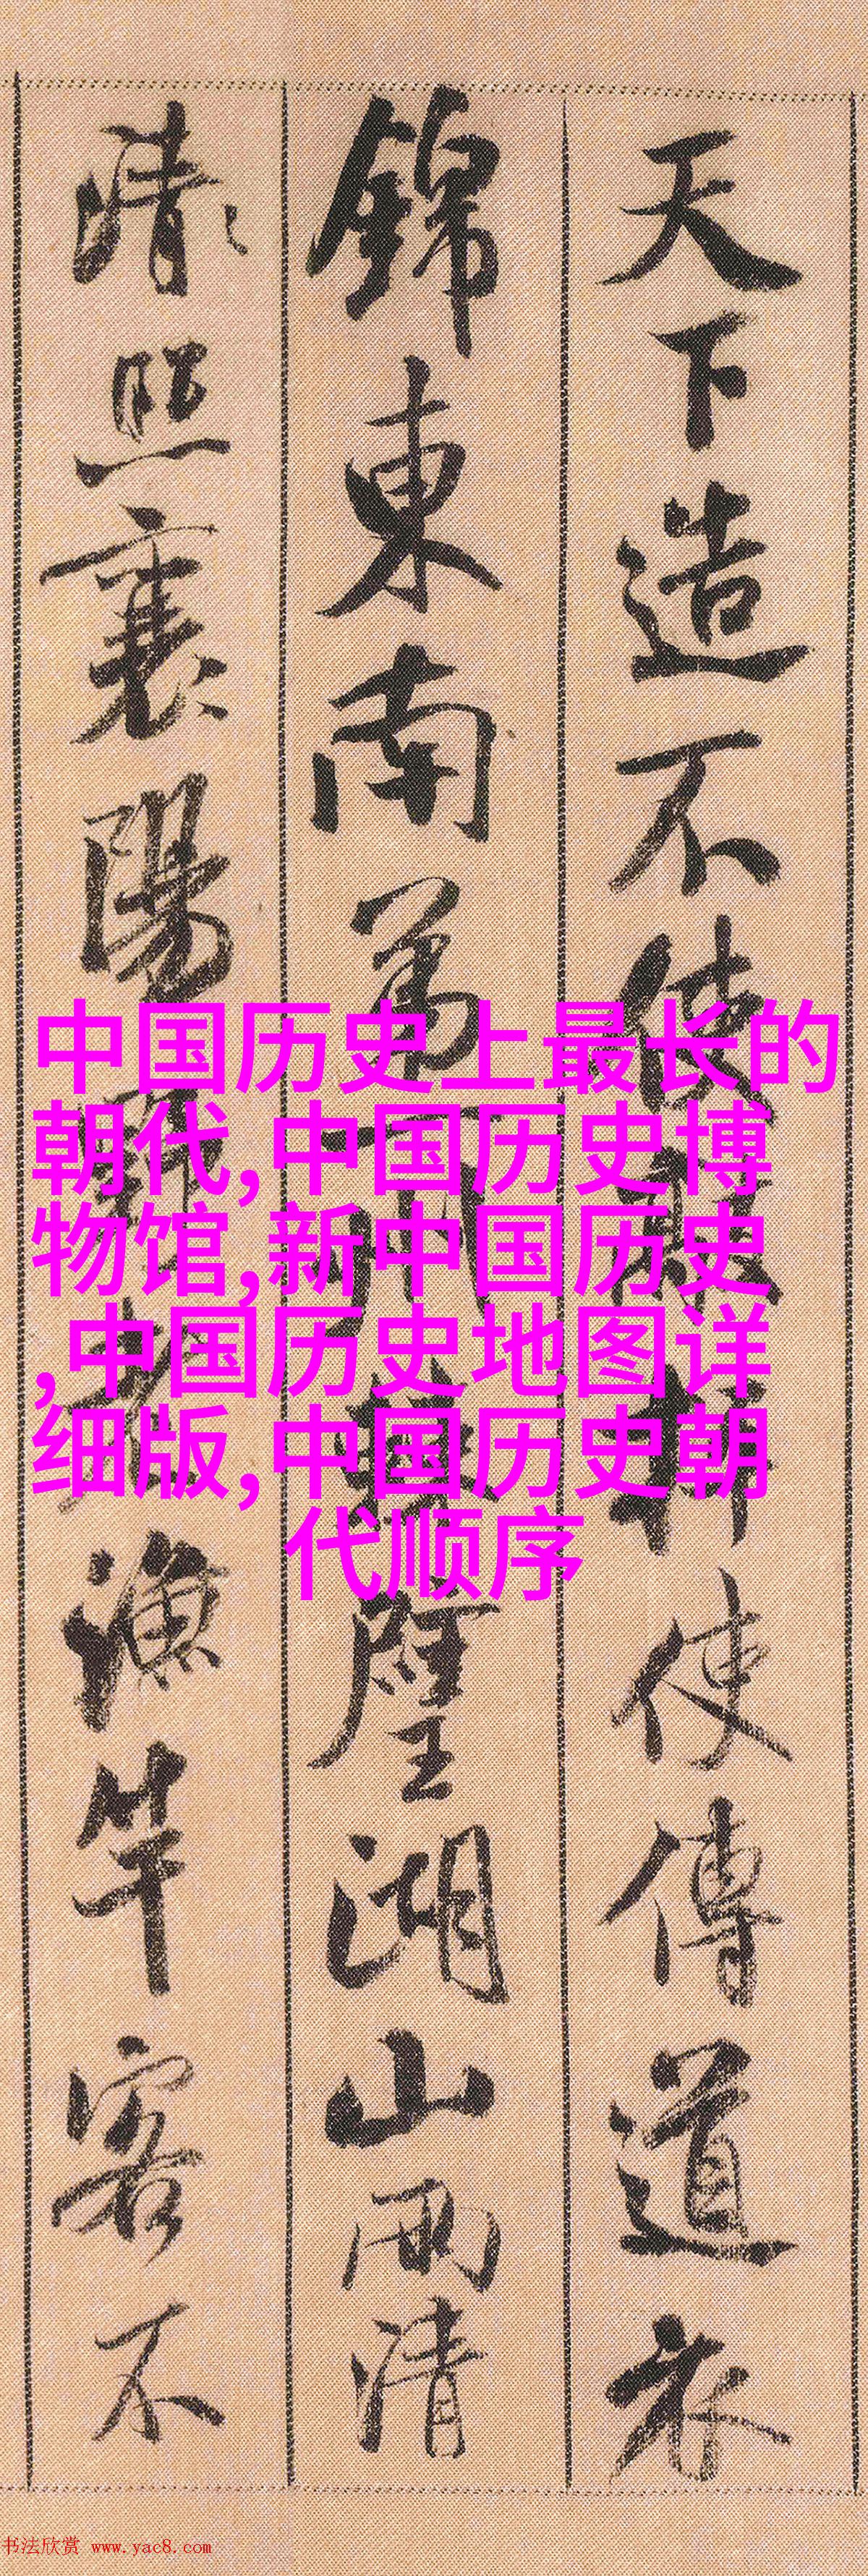 天下造不使賢材使傳道衣
錦東南第一州棘壁湖山兩清
清照襄陽野老漁竿客不
中国历史上最长的
朝代,中国历史博
物馆,新中国历史
,中国历史地图详
细版,中国历史朝
代顺序
书法欣赏 www.yac8.com